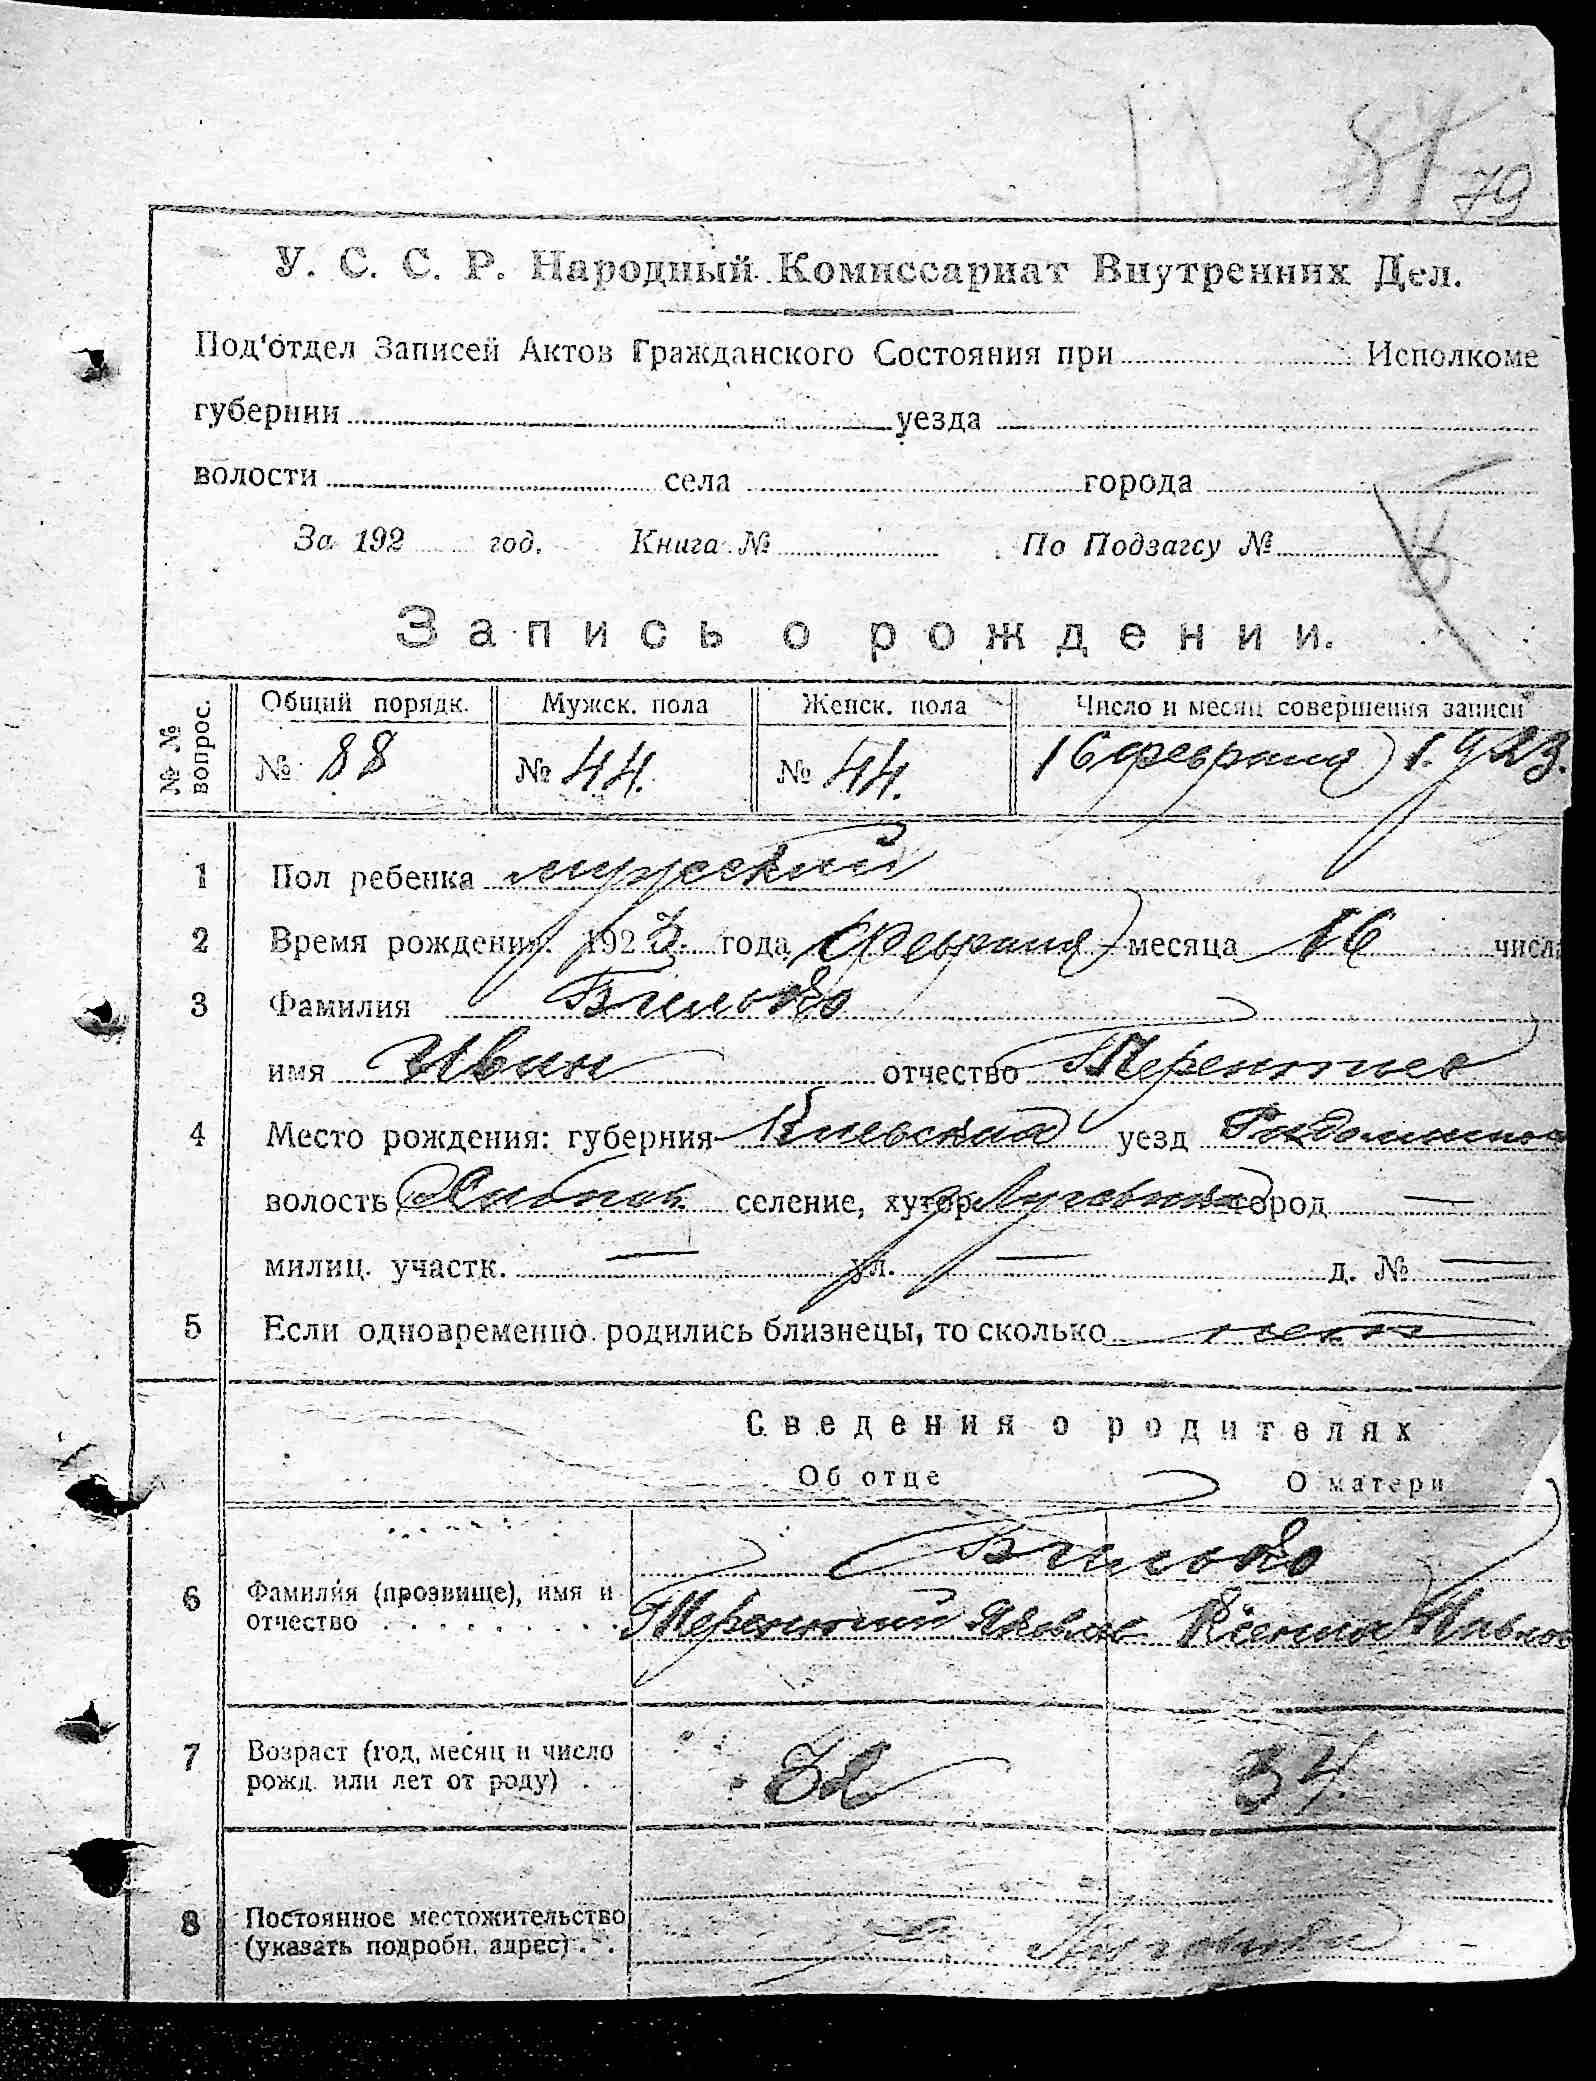 79
У. С. С. Р. Народный Комиссариат Внутренних Дел.
Под'отдел Записей Актов Гражданского Состояния при Исполкоме
губернии уезда
волости села города
За 192 год. Книга № По Подзагсу №
Запись о рождении.
№ № вопрос. Общий порядк. Мужск. пола Женск. пола Число и месяц совершения записи
№ 88 № 44. № 44. 16 февраля 1923.
1 Пол ребенка мужский
2 Время рождения: 1923. года февраля месяца 16 числа
3 Фамилия Билько
имя Иван отчество Терентиев
4 Место рождения: губерния Киевская уезд
волость селение, хутор Луговики город —
милиц. участк. — ул. — д. № —
5 Если одновременно родились близнецы, то сколько нет
Сведения о родителях
Об отце О матери
Билько
6 Фамилия (прозвище), имя и
отчество Терентий Яковлев Ксения Павлов
7 Возраст (год, месяц и число
рожд. или лет от роду) 32 34.
8 Постоянное местожительство
(указать подробн. адрес) Луговики